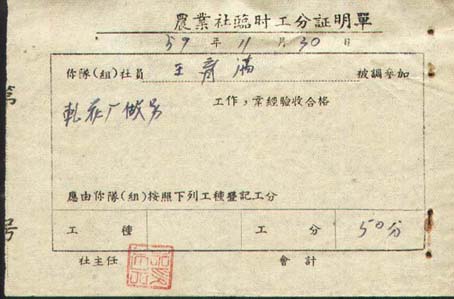 農業社臨时工分証明單
59年11月30日
你隊(組)社員 王 滿 被調參加
軋花厂做 工作,業經驗收合格
應由你隊(組)按照下列工種登記工分
工種 工分 50分
社主任 會計
第
号